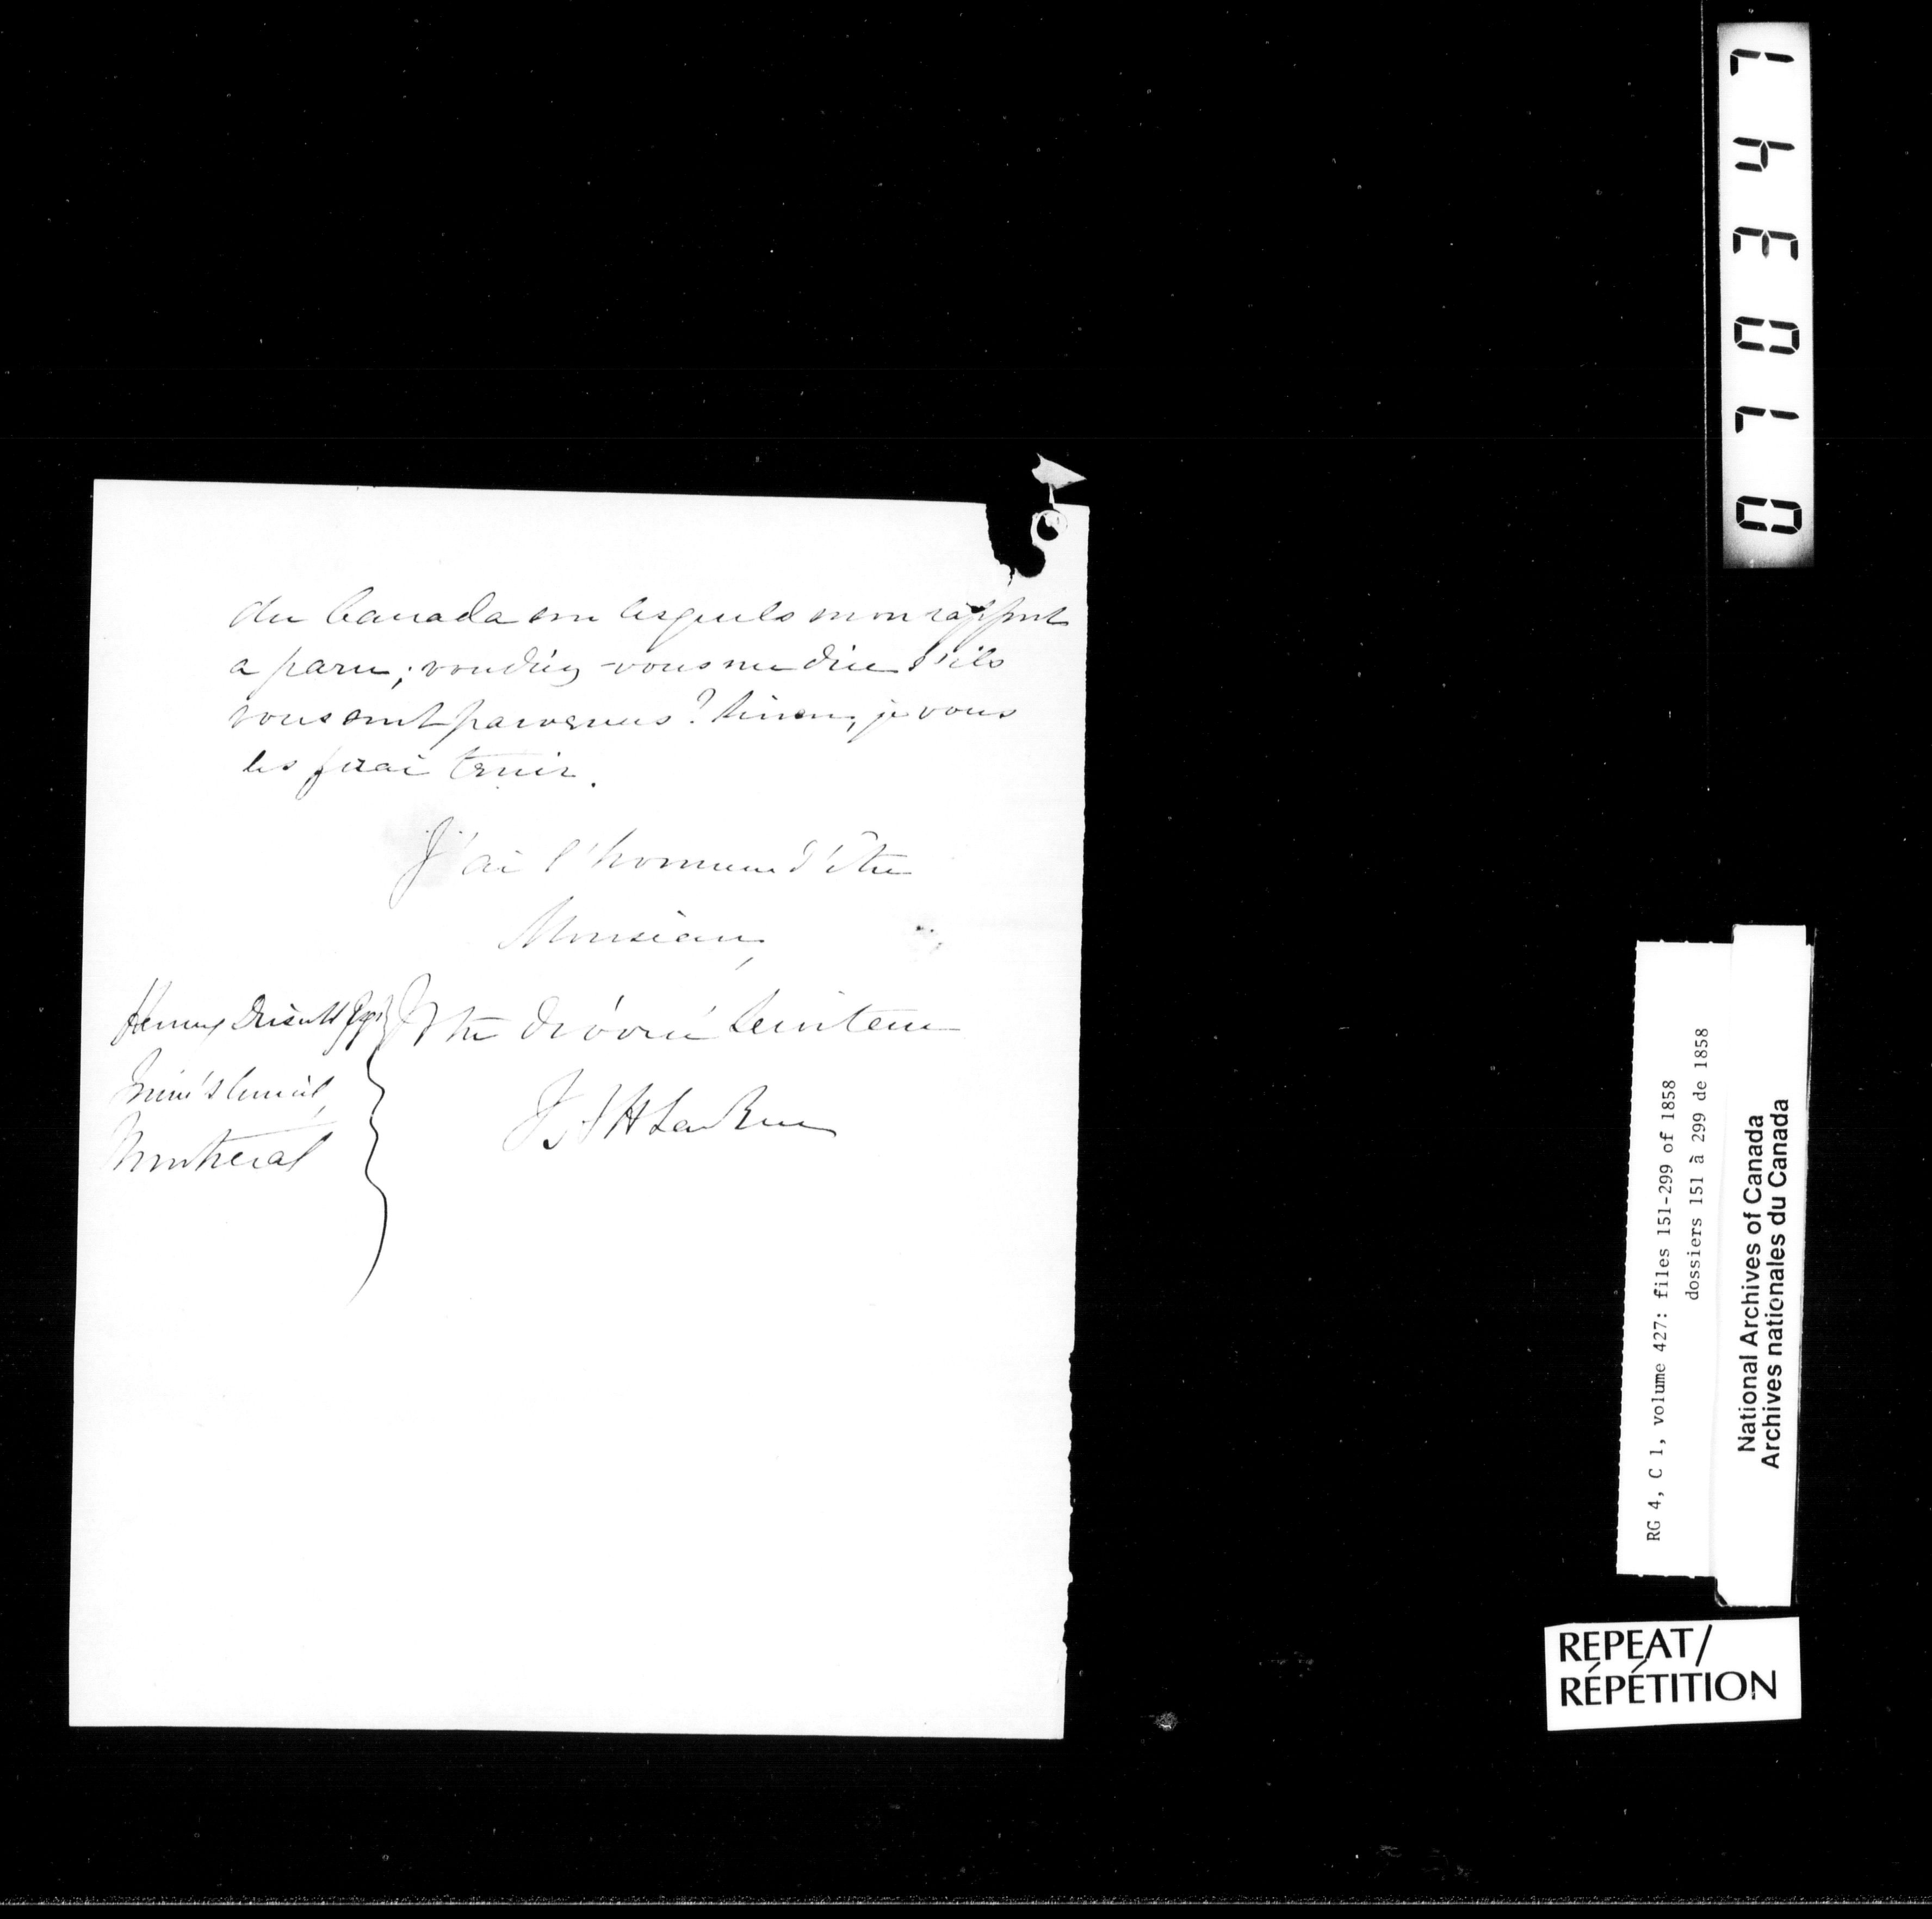 du Canada sur lesquels mon rapport
a paru; voudriez-vous me dire s'ils
vous sont parvenus? Sinon, je vous
les ferai tenir.
J'ai l'honneur d'être
Monsieur,
Votre dévoué Serviteur
Henry Driscoll
Montréal
RG 4, C 1, volume 427: files 151-299 of 1858
dossiers 151 à 299 de 1858
National Archives of Canada
Archives nationales du Canada
REPEAT/
RÉPÉTITION